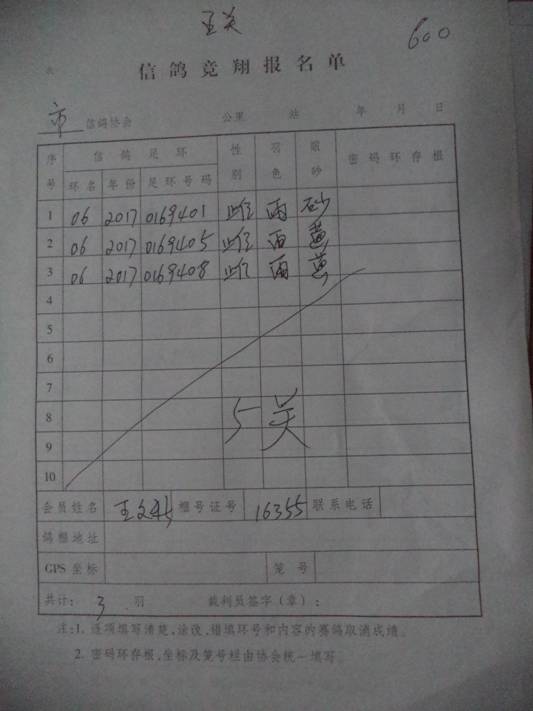 五关
600
信鸽竞翔报名单
市 信鸽协会 公里 站 年 月 日
序号 信鸽足环 性别 羽色 眼砂 密码环存根
环名 年份 足环号码
1 06 2017 0169401 雌 雨 砂
2 06 2017 0169405 雌 雨 黄
3 06 2017 0169408 雌 雨 黄
4
5
6
7
8 5关
9
10
会员姓名 王文 棚号证号 16355 联系电话
鸽棚地址
GPS 坐标 笼号
共计: 3 羽 裁判员签字(章):
注:1. 逐项填写清楚,涂改、错填环号和内容的赛鸽取消成绩。
2. 密码环存根,坐标及笼号栏由协会统一填写。